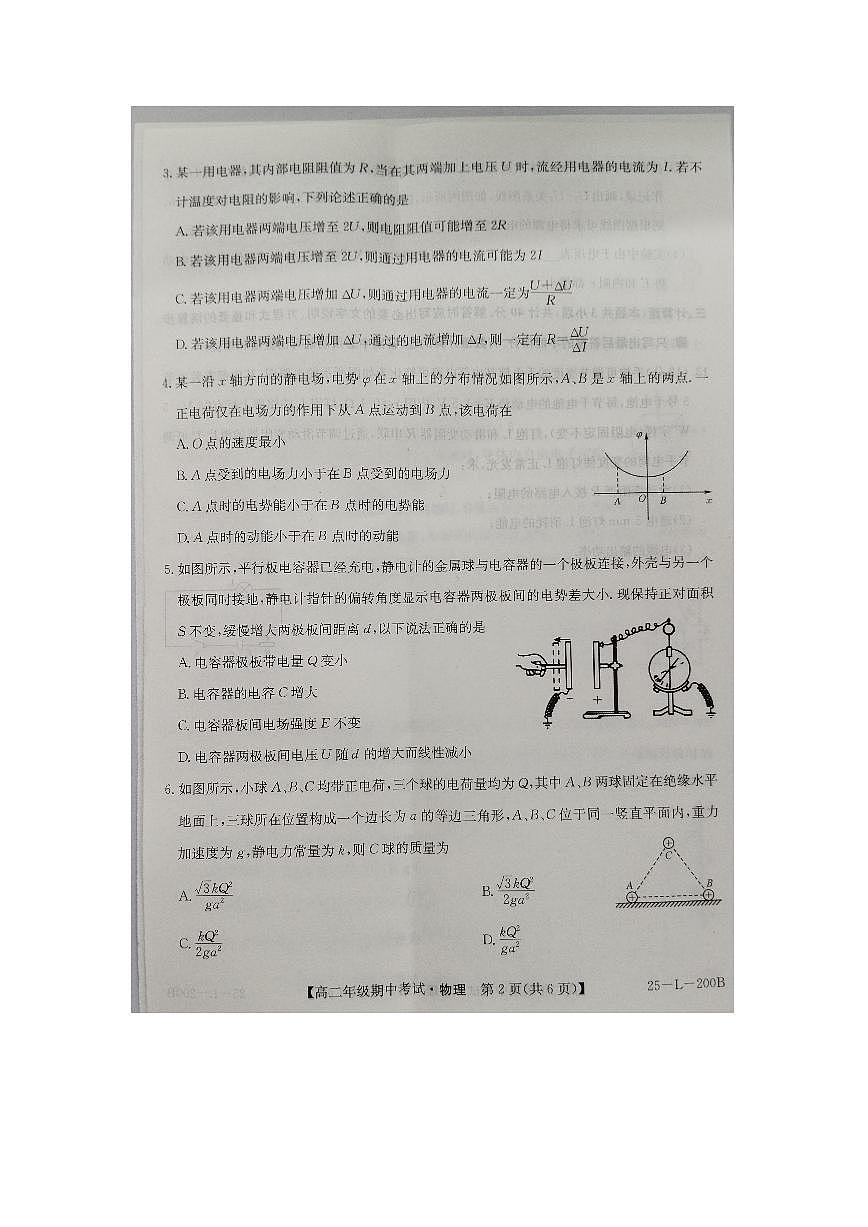 3.某一用电器,其内部电阻阻值为R,当在其两端加上电压U时,流经用电器的电流为I.若不
计温度对电阻的影响,下列论述正确的是
A.若该用电器两端电压增至2U,则电阻阻值可能增至2R
B.若该用电器两端电压增至2U,则通过用电器的电流可能为2I
C.若该用电器两端电压增加ΔU,则通过用电器的电流一定为(U+ΔU)/R
D.若该用电器两端电压增加ΔU,通过的电流增加ΔI,则一定有R=ΔU/ΔI
4.某一沿x轴方向的静电场,电势φ在x轴上的分布情况如图所示,A、B是x轴上的两点.一
正电荷仅在电场力的作用下从A点运动到B点,该电荷在
A.O点的速度最小
B.A点受到的电场力小于在B点受到的电场力
C.A点时的电势能小于在B点时的电势能
D.A点时的动能小于在B点时的动能
φ
A O B x
5.如图所示,平行板电容器已经充电,静电计的金属球与电容器的一个极板连接,外壳与另一个
极板同时接地,静电计指针的偏转角度显示电容器两极板间的电势差大小.现保持正对面积
S不变,缓慢增大两极板间距离d,以下说法正确的是
A.电容器极板带电量Q变小
B.电容器的电容C增大
C.电容器板间电场强度E不变
D.电容器两极板间电压U随d的增大而线性减小
− +
6.如图所示,小球A、B、C均带正电荷,三个球的电荷量均为Q,其中A、B两球固定在绝缘水平
地面上,三球所在位置构成一个边长为a的等边三角形,A、B、C位于同一竖直平面内,重力
加速度为g,静电力常量为k,则C球的质量为
A.√3kQ²/ga² B.√3kQ²/2ga²
C.kQ²/2ga² D.kQ²/ga²
C
A B
【高二年级期中考试·物理 第2页(共6页)】 25-L-200B